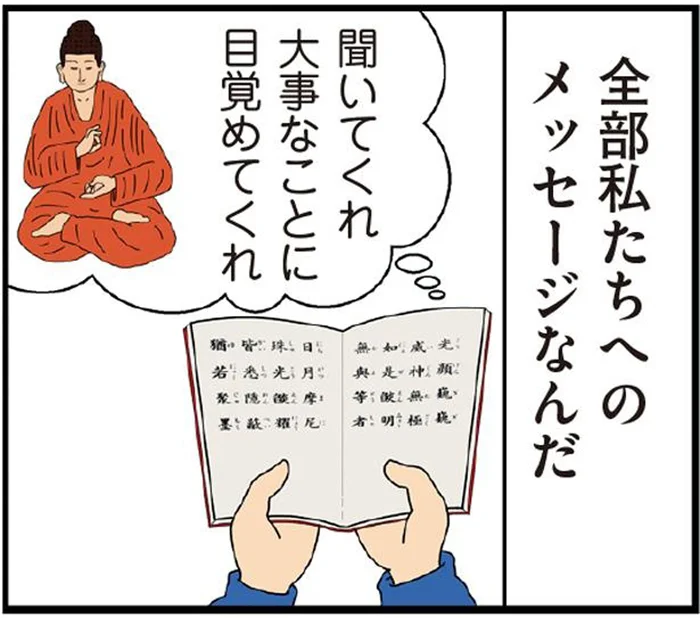 全部私たちへの
メッセージなんだ
聞いてくれ
大事なことに
目覚めてくれ
光顔巍巍
威神無極
如是燄明
無與等者
日月摩尼
珠光燄耀
皆悉隠蔽
猶若聚墨